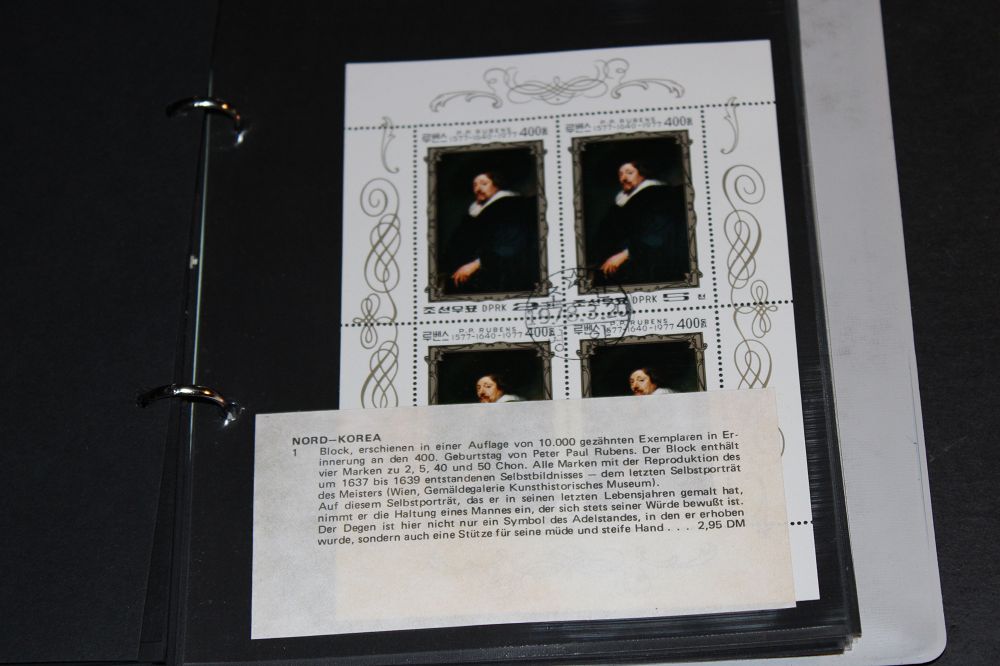 루벤스 P.P. RUBENS 1577-1640-1977 400돐
루벤스 P.P. RUBENS 1577-1640-1977 400돐
조선우표 DPRK
조선우표 DPRK 5 전
1978.3.20
루벤스 P.P. RUBENS 1577-1640-1977 400돐
루벤스 P.P. RUBENS 1577-1640-1977 400돐
NORD—KOREA
1 Block, erschienen in einer Auflage von 10.000 gezähnten Exemplaren in Er-
innerung an den 400. Geburtstag von Peter Paul Rubens. Der Block enthält
vier Marken zu 2, 5, 40 und 50 Chon. Alle Marken mit der Reproduktion des
um 1637 bis 1639 entstandenen Selbstbildnisses — dem letzten Selbstporträt
des Meisters (Wien, Gemäldegalerie Kunsthistorisches Museum).
Auf diesem Selbstporträt, das er in seinen letzten Lebensjahren gemalt hat,
nimmt er die Haltung eines Mannes ein, der sich stets seiner Würde bewußt ist.
Der Degen ist hier nicht nur ein Symbol des Adelstandes, in den er erhoben
wurde, sondern auch eine Stütze für seine müde und steife Hand . . . 2,95 DM